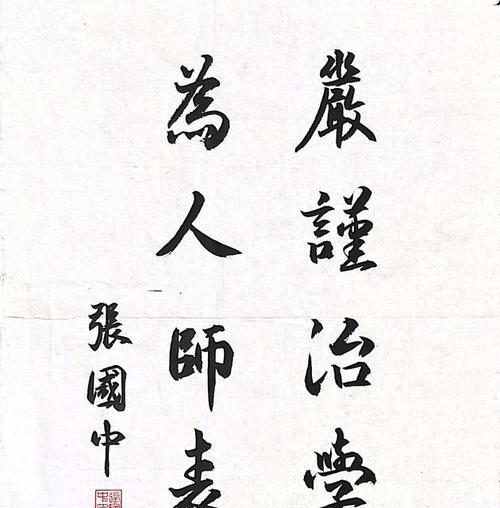 嚴謹治學
為人師表
張國中